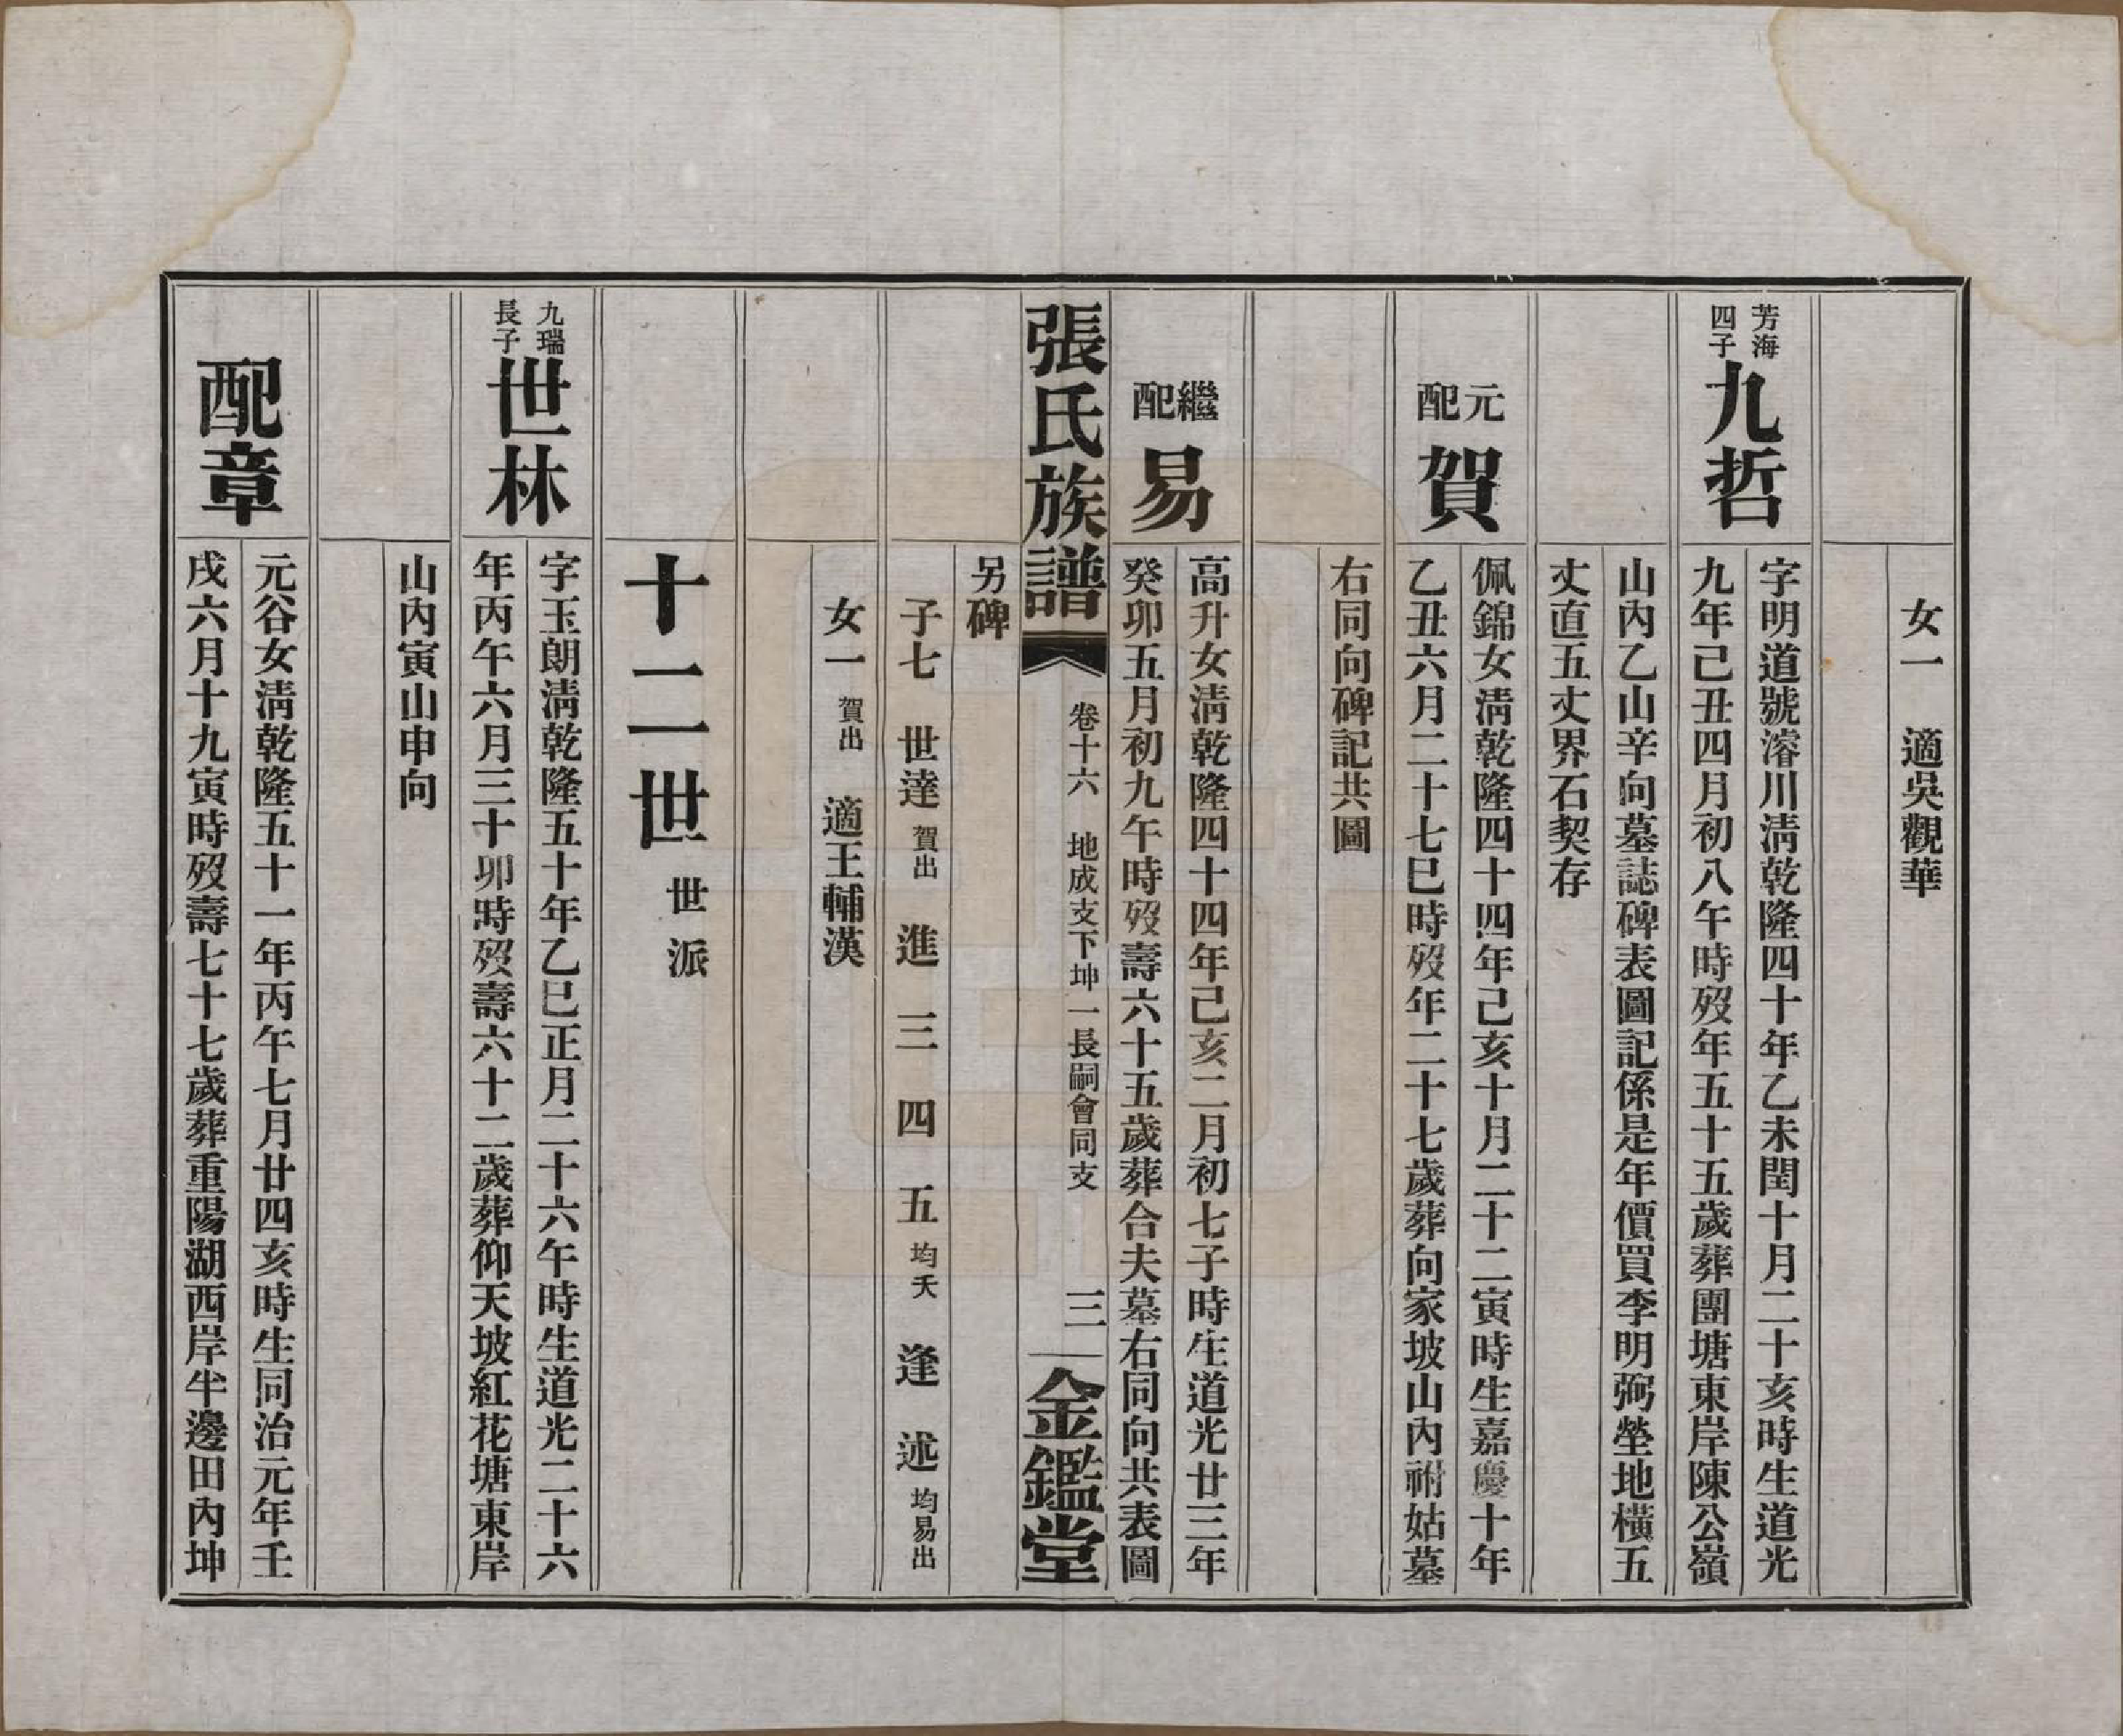 女一　適吳觀華
芳海四子
九哲
字明道號濬川清乾隆四十年乙未閏十月二十亥時生道光
九年己丑四月初八午時歿年五十五歲葬團塘東岸陳公嶺
山內乙山辛向墓誌碑表圖記係是年價買李明弼塋地橫五
丈直五丈界石契存
元配
賀
佩錦女清乾隆四十四年己亥十月二十二寅時生嘉慶十年
乙丑六月二十七巳時歿年二十七歲葬向家坡山內祔姑墓
右同向碑記共圖
繼配
易
高升女清乾隆四十四年己亥二月初七子時生道光廿三年
癸卯五月初九午時歿壽六十五歲葬合夫墓右同向共表圖
張氏族譜　卷十六　地成支下坤一長嗣會同支　三　金鑑堂
另碑
子七　世達賀出　進　三　四　五均夭　逢　述均易出
女一賀出　適王輔漢
十二世　世派
九瑞長子
世林
字玉朗清乾隆五十年乙巳正月二十六午時生道光二十六
年丙午六月三十卯時歿壽六十二歲葬仰天坡紅花塘東岸
山內寅山申向
配章
元谷女清乾隆五十一年丙午七月廿四亥時生同治元年壬
戌六月十九寅時歿壽七十七歲葬重陽湖西岸半邊田內坤